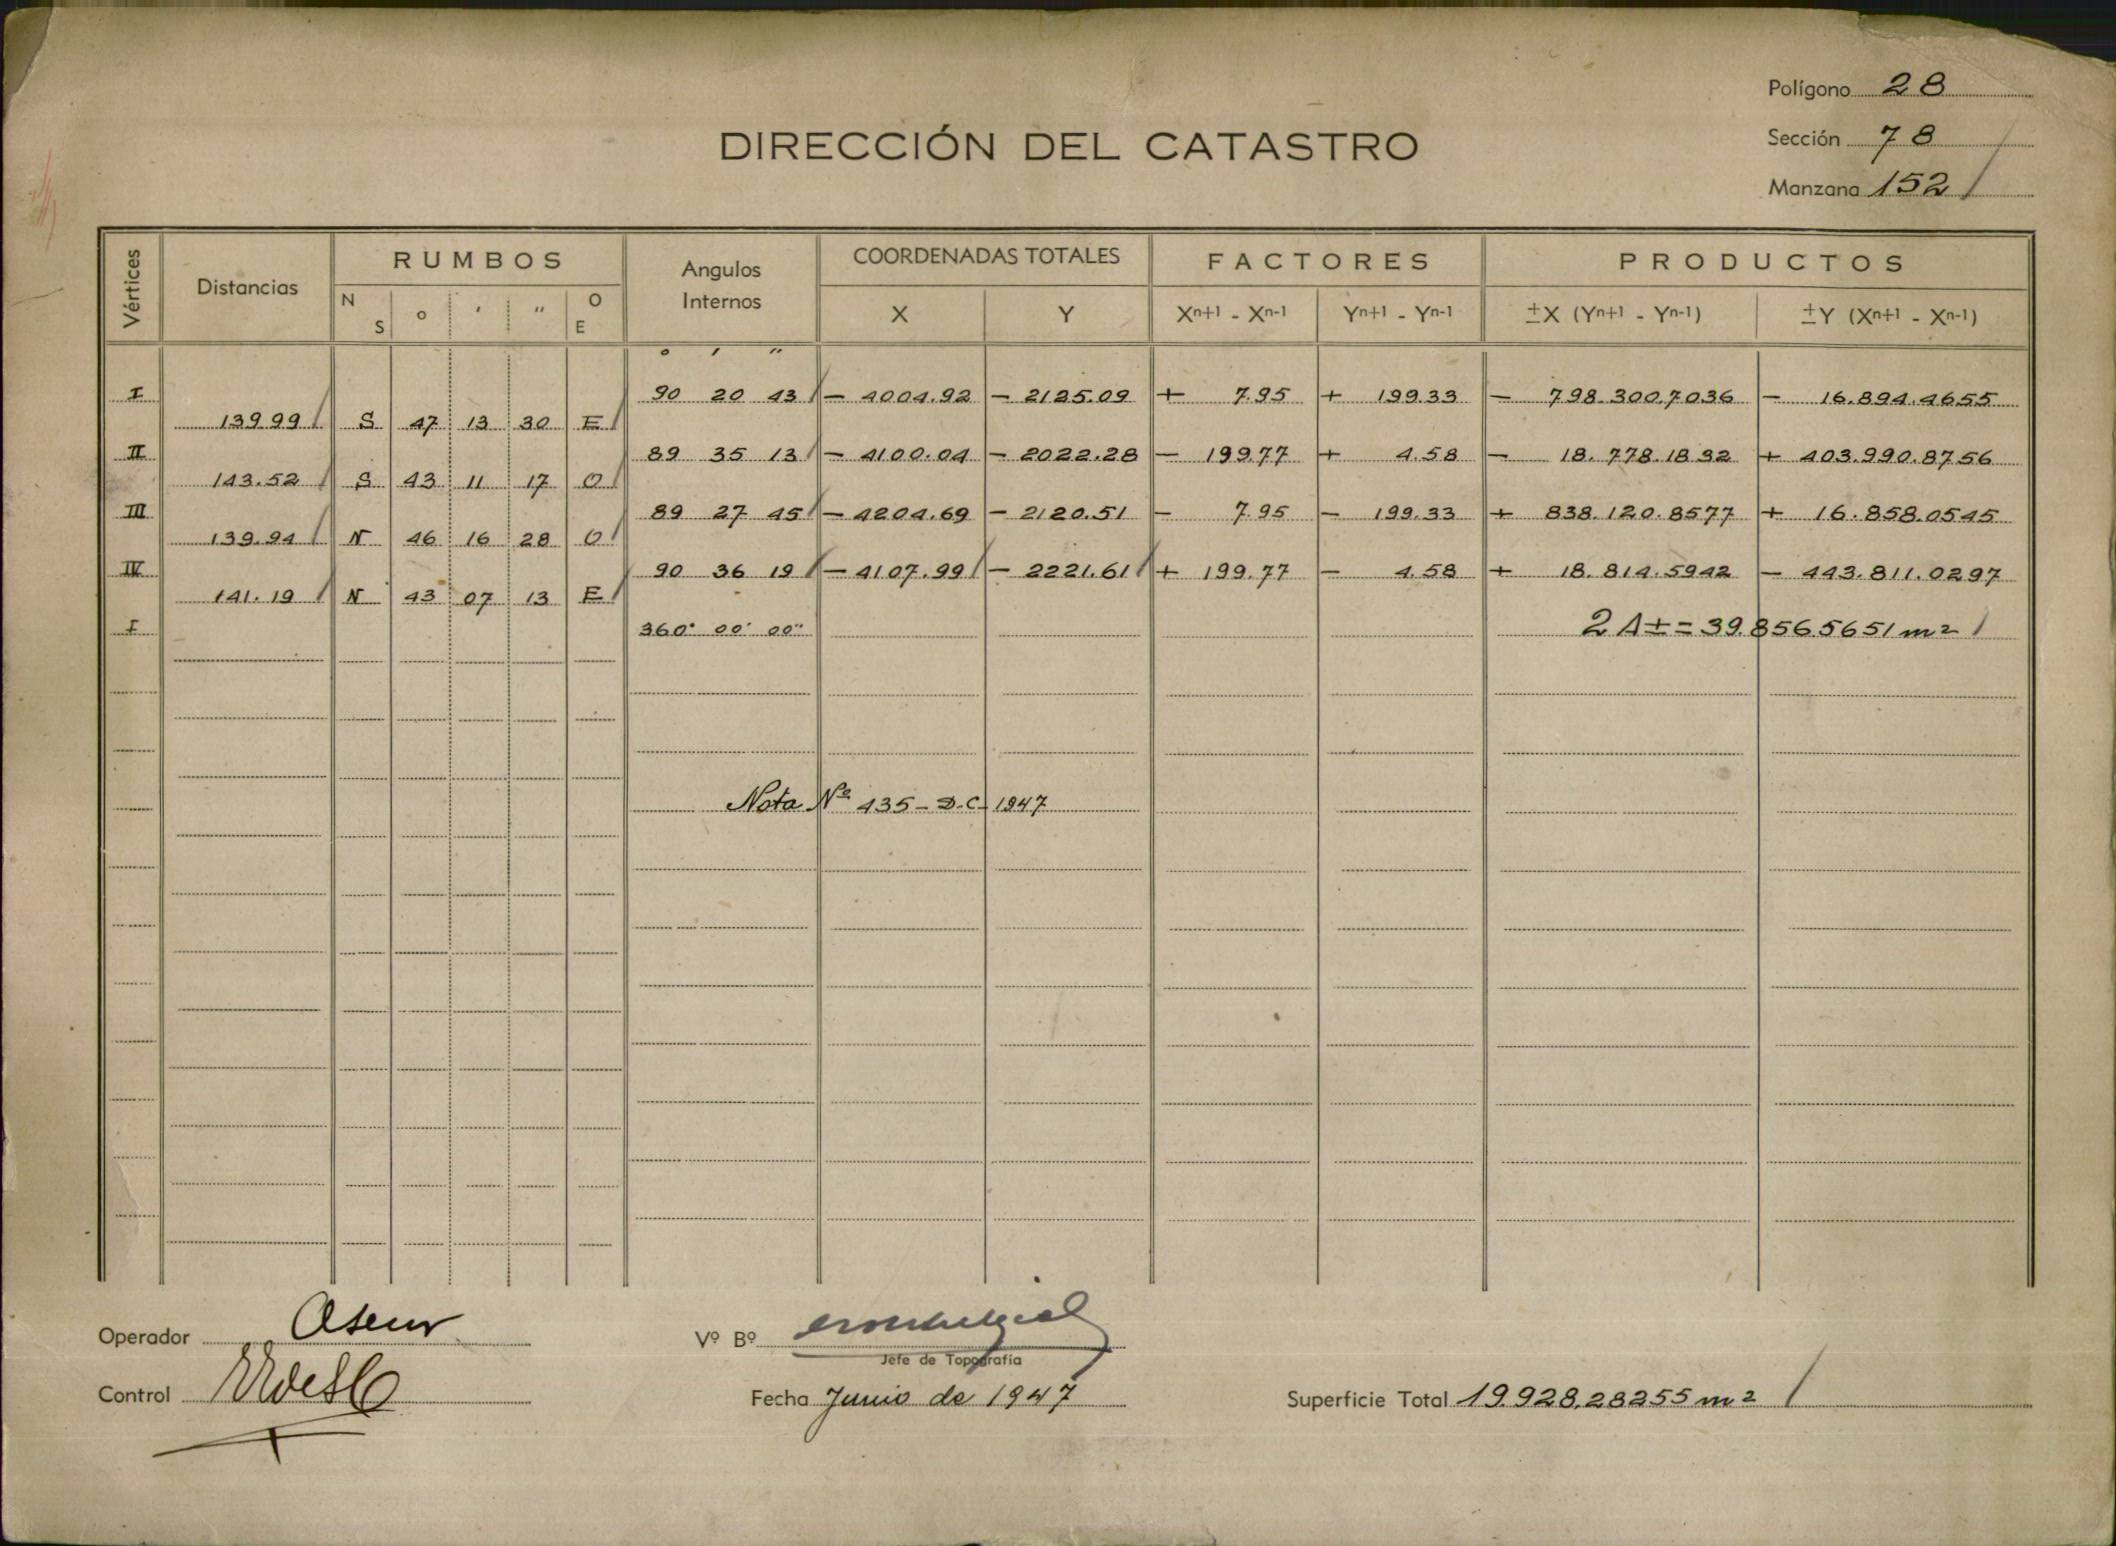 Polígono 28
DIRECCIÓN DEL CATASTRO
Sección 78
Manzana 152
Vértices Distancias RUMBOS Angulos Internos COORDENADAS TOTALES FACTORES PRODUCTOS
N S ° ' " O E X Y Xⁿ⁺¹ - Xⁿ⁻¹ Yⁿ⁺¹ - Yⁿ⁻¹ ±X (Yⁿ⁺¹ - Yⁿ⁻¹) ±Y (Xⁿ⁺¹ - Xⁿ⁻¹)
° ' "
I 90 20 43 - 4004.92 - 2125.09 + 7.95 + 199.33 - 798.300.7036 - 16.894.4655
139.99 S 47 13 30 E
II 89 35 13 - 4100.04 - 2022.28 - 199.77 + 4.58 - 18.778.1832 + 403.990.8756
143.52 S 43 11 17 O
III 89 27 45 - 4204.69 - 2120.51 - 7.95 - 199.33 + 838.120.8577 + 16.858.0545
139.94 N 46 16 28 O
IV 90 36 19 - 4107.99 - 2221.61 + 199.77 - 4.58 + 18.814.5942 - 443.811.0297
141.19 N 43 07 13 E
I 360° 00' 00" 2 A ± = 39.856.5651 m²
Nota Nº 435 - D.C - 1947
Operador
Vº Bº
Jefe de Topografía
Control
Fecha Junio de 1947
Superficie Total 19.928.28255 m²